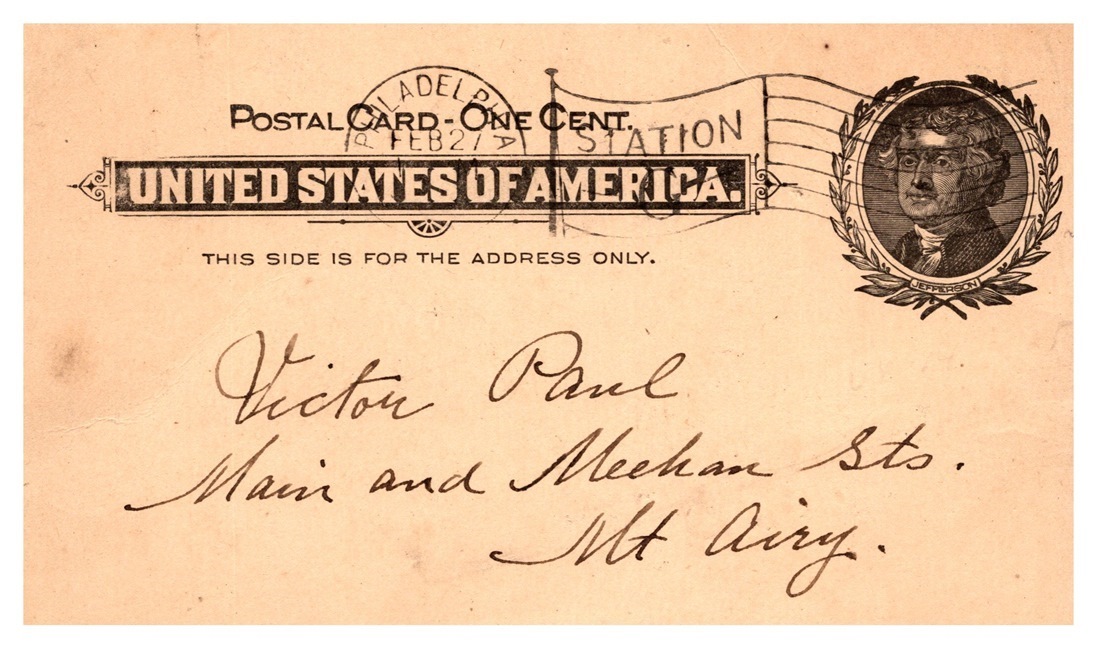 PHILADELPHIA
POSTAL CARD - ONE CENT.
FEB 27
STATION
UNITED STATES OF AMERICA.
THIS SIDE IS FOR THE ADDRESS ONLY.
JEFFERSON
Victor Paul
Main and Meehan Sts.
Mt Airy.